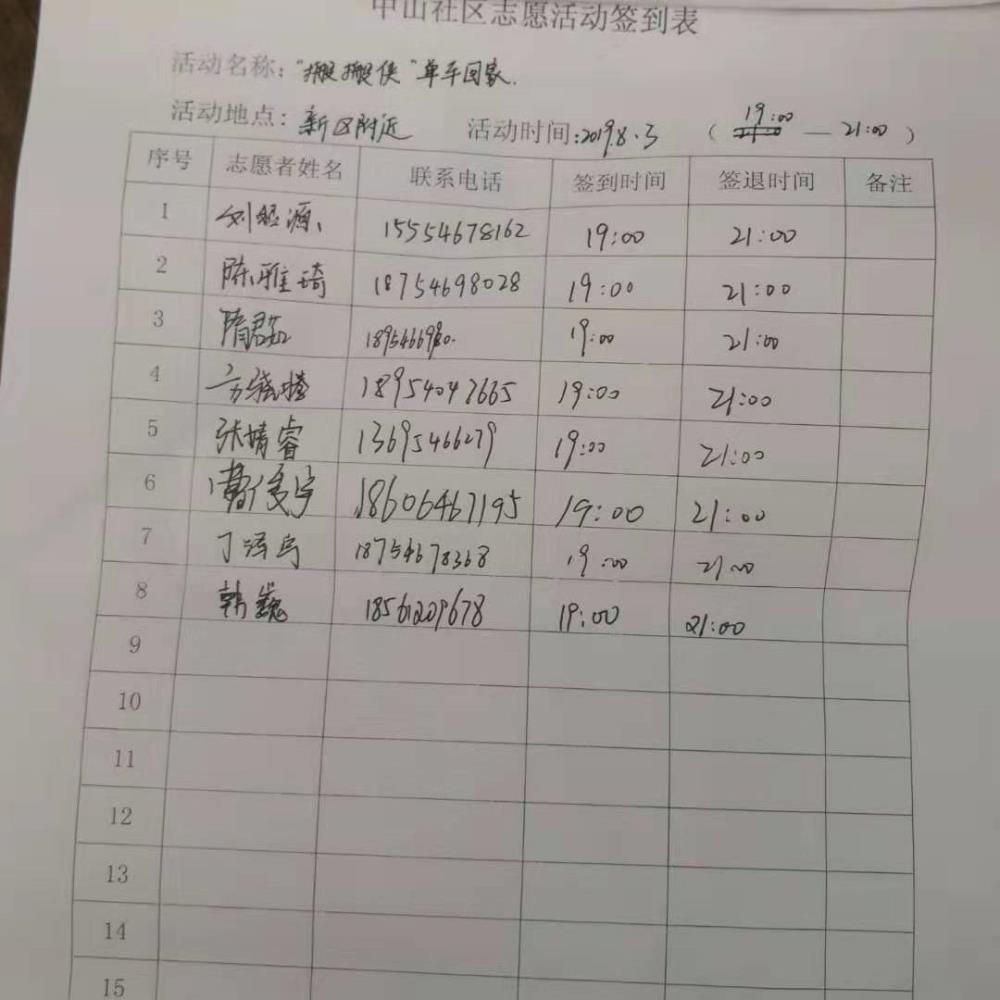 中山社区志愿活动签到表
活动名称：“搬搬侠”单车回家.
活动地点：新区附近 活动时间：2019.8.3 （19:00 — 21:00）
序号 志愿者姓名 联系电话 签到时间 签退时间 备注
1 15554678162 19:00 21:00
2 陈雅琦 18754698028 19:00 21:00
3 隋君茹 19:00 21:00
4 18954047665 19:00 21:00
5 张婧睿 13695466279 19:00 21:00
6 18606467195 19:00 21:00
7 丁泽宇 18754678368 19:00 21:00
8 韩巍 18561209678 19:00 21:00
9
10
11
12
13
14
15